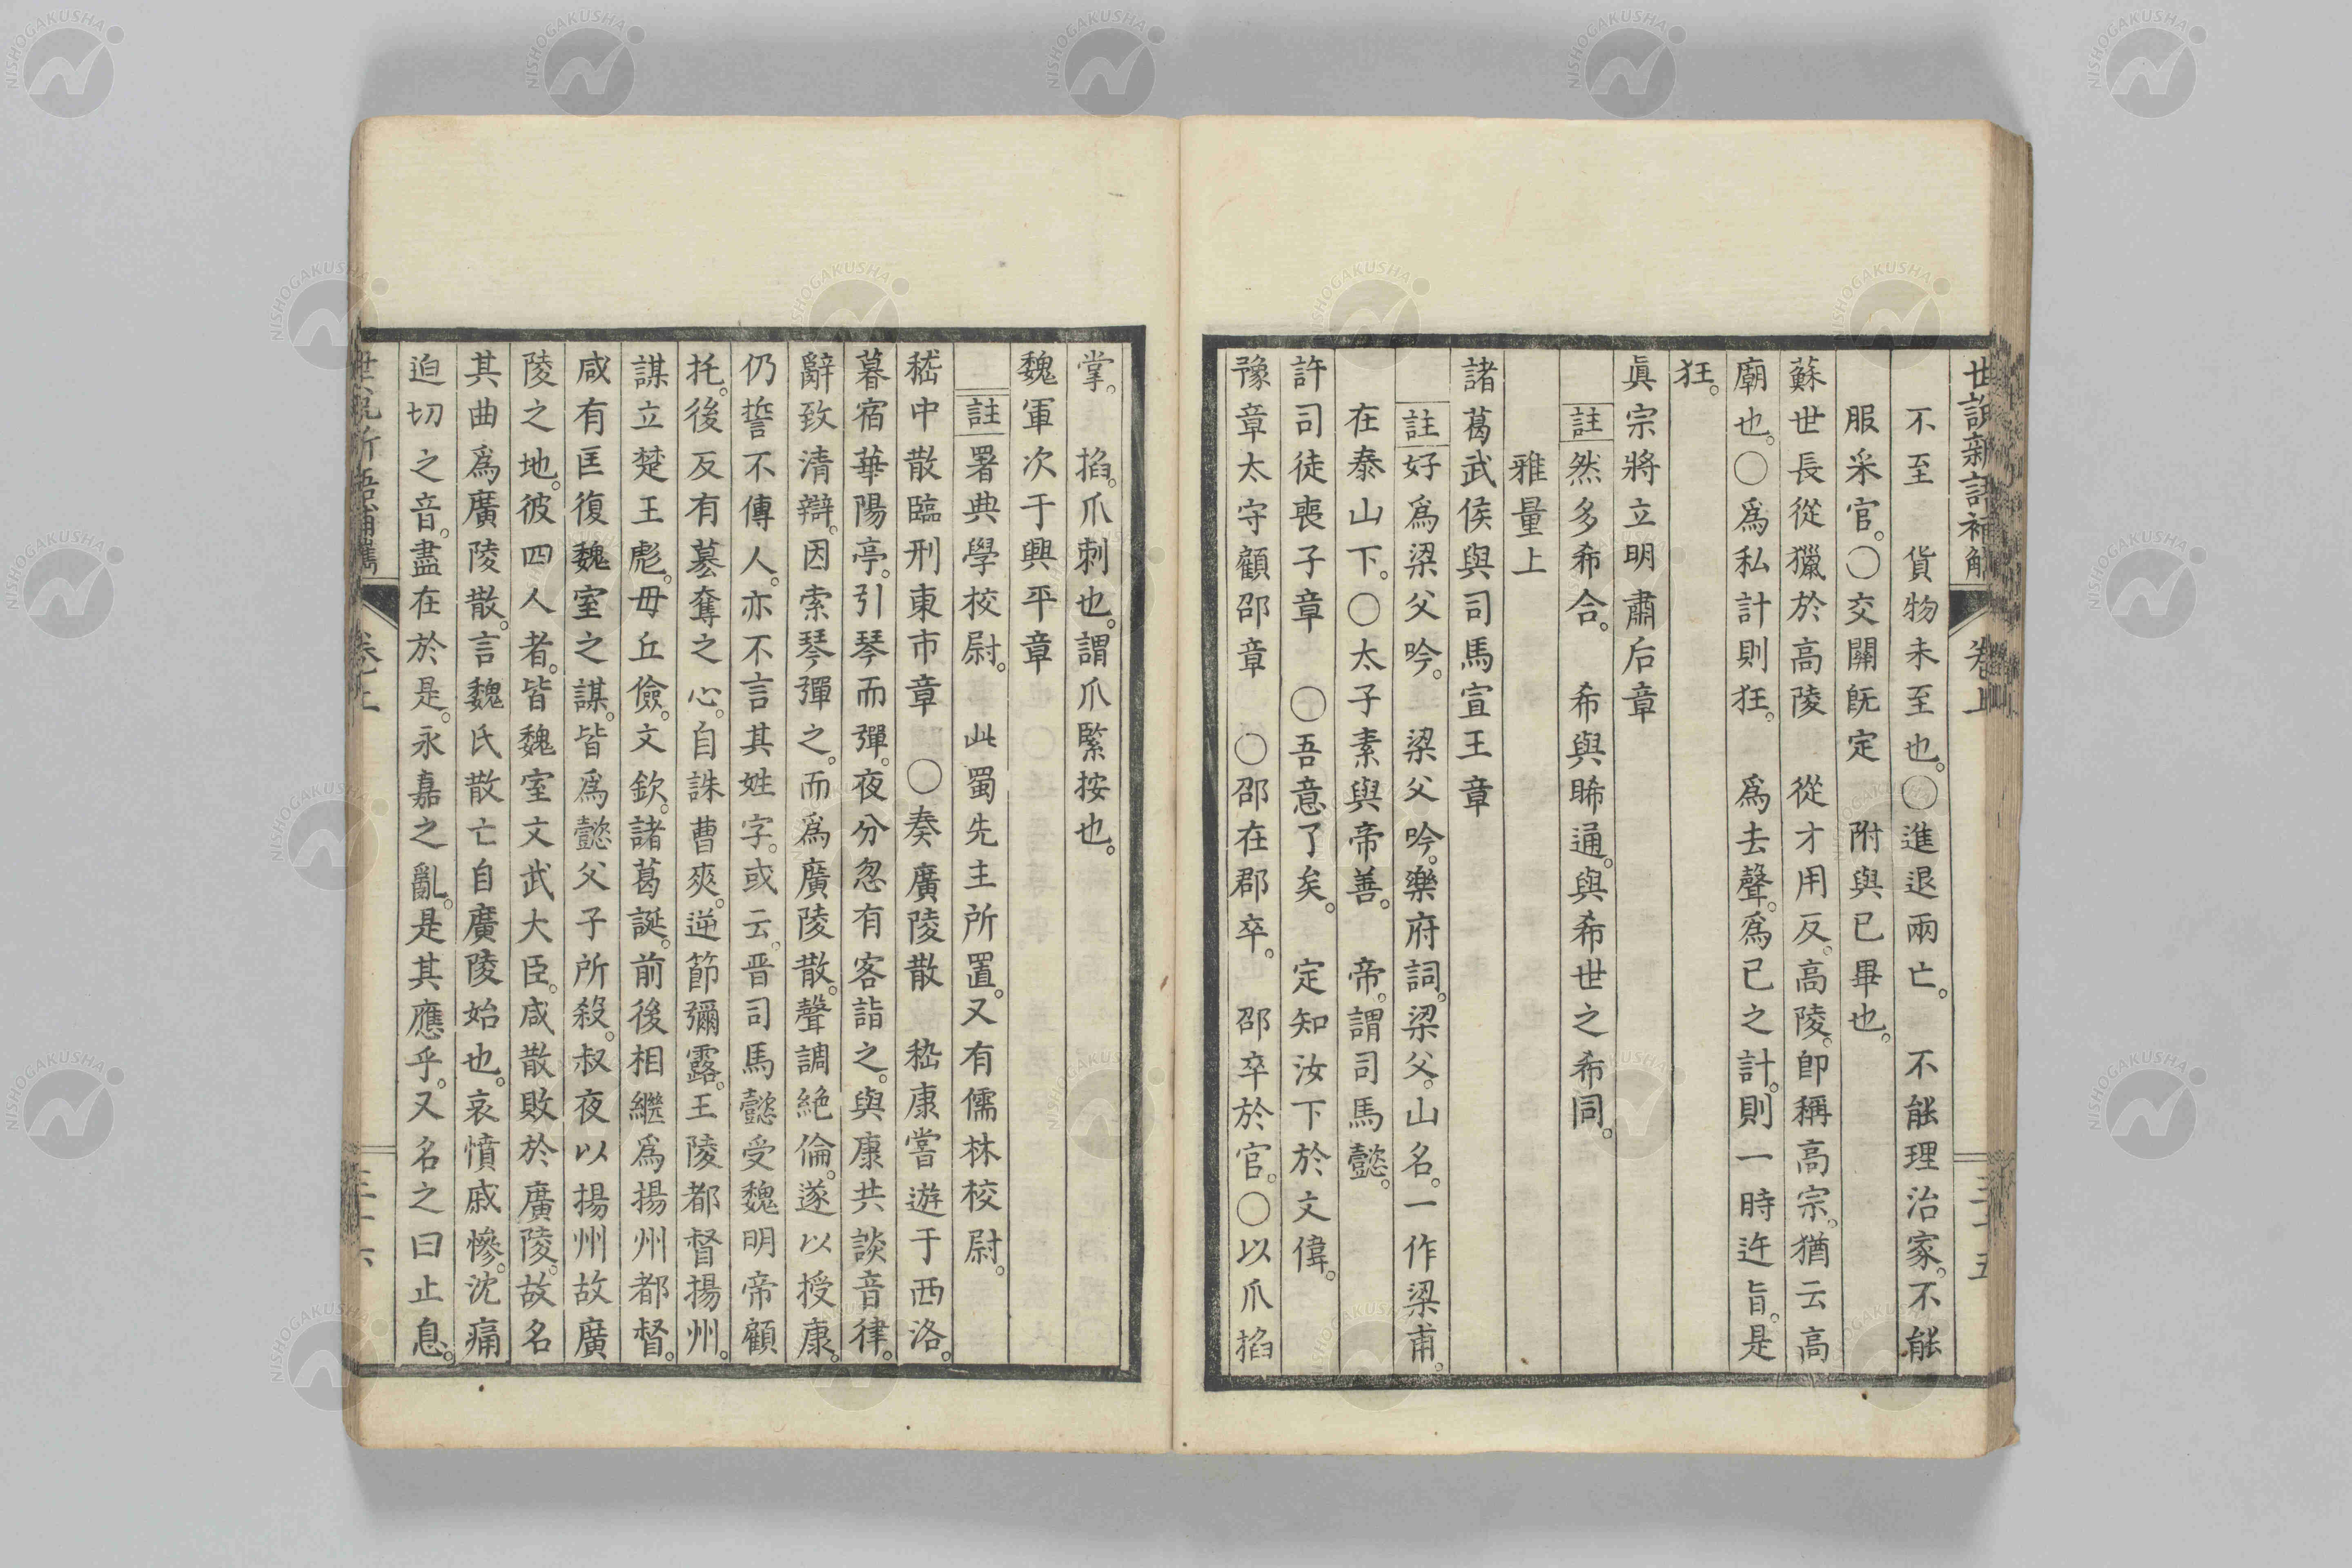 世說新語補觿 卷上 三十五
不至　貨物未至也。〇進退兩亡。　不能理治家。不能
服采官。〇交關旣定　附與已畢也。
蘇世長從獵於高陵　從才用反。高陵。卽稱高宗。猶云高
廟也。〇爲私計則狂。　爲去聲。爲已之計。則一時迕旨。是
狂。
眞宗將立明肅后章
註然多希合。　希與睎通。與希世之希同。
雅量上
諸葛武侯與司馬宣王章
註好爲梁父吟。　梁父吟。樂府詞。梁父。山名。一作梁甫。
在泰山下。〇太子素與帝善。　帝。謂司馬懿。
許司徒喪子章　〇吾意了矣。　定知汝下於文偉。
豫章太守顧邵章　〇邵在郡卒。　邵卒於官。〇以爪掐
掌。　掐。爪刺也。謂爪緊按也。
魏軍次于興平章
註署典學校尉。　此蜀先主所置。又有儒林校尉。
嵇中散臨刑東市章　〇奏廣陵散　嵇康嘗遊于西洛。
暮宿華陽亭。引琴而彈。夜分忽有客詣之。與康共談音律。
辭致清辯。因索琴彈之。而爲廣陵散。聲調絶倫。遂以授康。
仍誓不傳人。亦不言其姓字。或云。晋司馬懿受魏明帝顧
托。後反有簒奪之心。自誅曹爽。逆節彌露。王陵都督揚州。
謀立楚王彪。毋丘儉。文欽。諸葛誕。前後相繼爲揚州都督。
咸有匡復魏室之謀。皆爲懿父子所殺。叔夜以揚州故廣
陵之地。彼四人者。皆魏室文武大臣。咸散敗於廣陵。故名
其曲爲廣陵散。言魏氏散亡自廣陵始也。哀憤戚慘。沈痛
迫切之音。盡在於是。永嘉之亂。是其應乎。又名之曰止息。
世說新語補觿 卷上 三十六